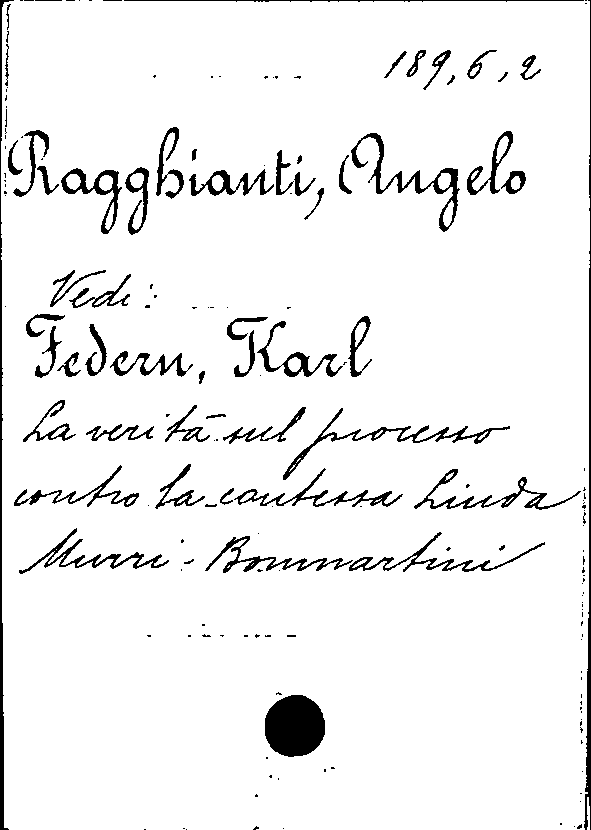 189,6,2
Ragghianti, Angelo
Vedi:
Federn, Karl
La verità sul processo
contro la contessa Linda
Murri-Bonmartini